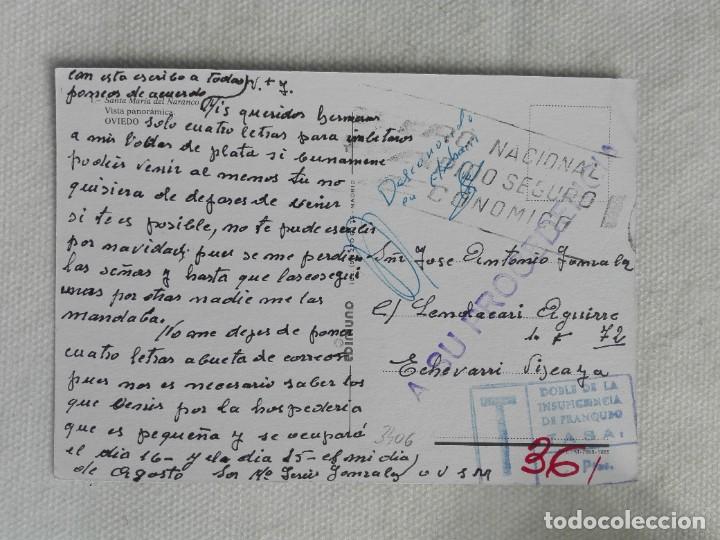 con esta escribo a todas
poneos de acuerdo V. + J.
1 - Santa María del Naranco
Vista panorámica
OVIEDO
Mis queridos hermanos
solo cuatro letras para
a mis bodas de plata si
podéis venir al menos tu no
quisiera de dejares de venir
si te es posible, no te pude escribir
por navidad; pues se me perdieron
las señas y hasta que las
unas por otras nadie me las
mandaba.
No me dejes de poner
cuatro letras a buelta de correo
pues nos es necesario saber los
que benis por la hospederia
que es pequeña y se ocupará
el dia 16- y el dia 15- el mi dia
de agosto Sor Mª Gonzalez O V S M
ediciuno
NACIONAL
SEGURO
CONOMICO
Desconocido
en
A SU PROCEDENCIA
Sñr Jose Antonio Gonzalez
C/ Lendacari Aguirre
72
Echevarri Vizcaya
3406
T
DOBLE DE LA
INSUFICIENCIA
DE FRANQUEO
TASA:
36
Ptas.
todocoleccion.net